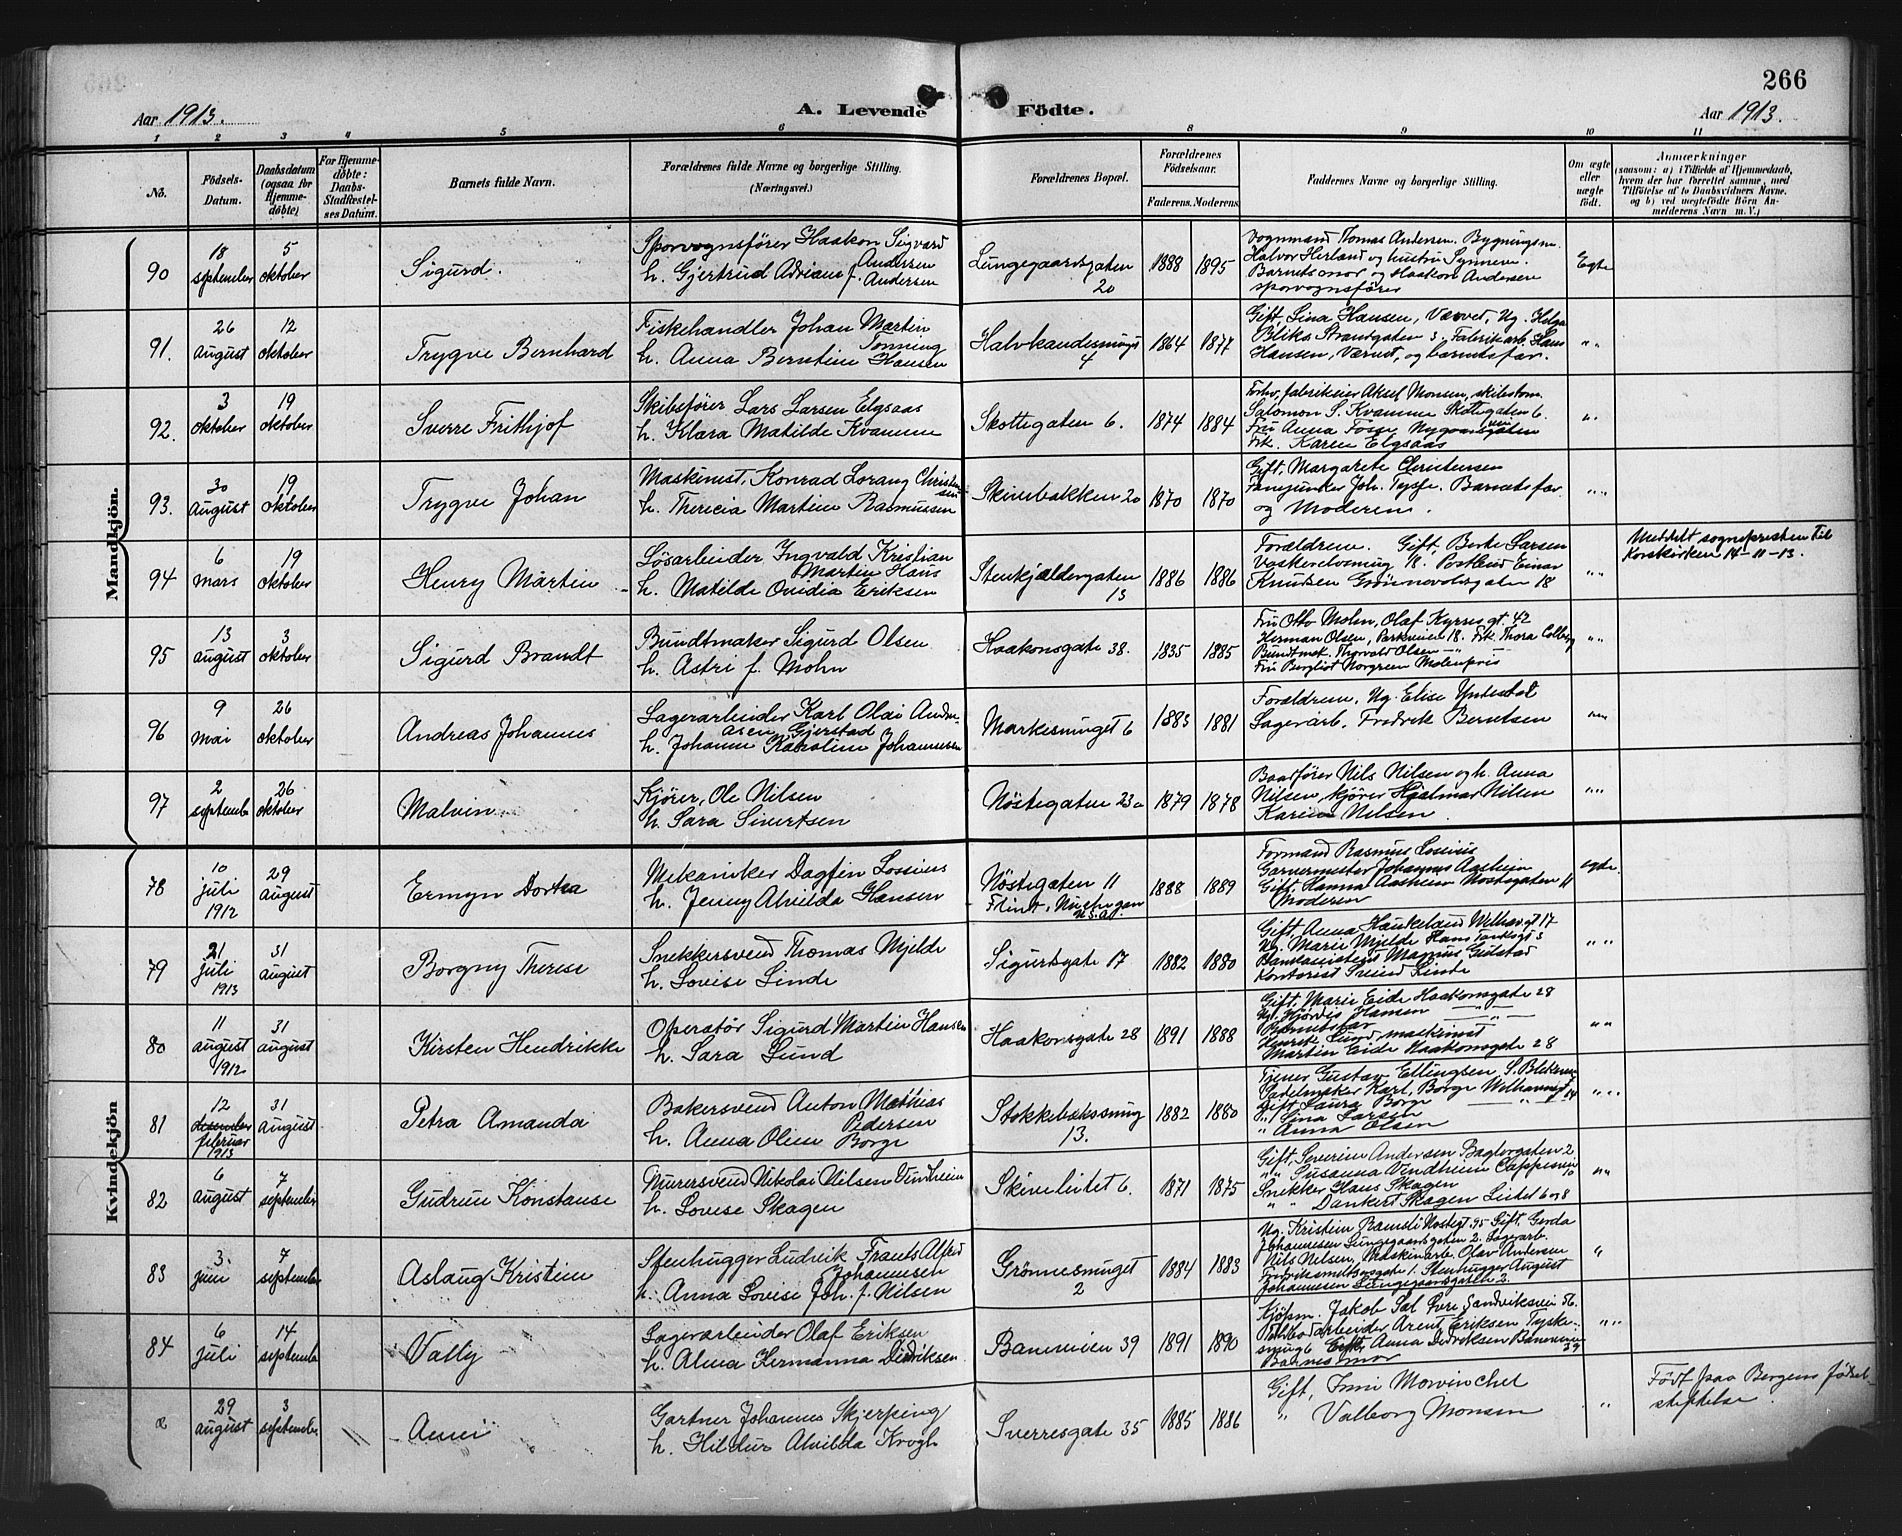 266
Aar 1913.
A. Levende Födte.
Aar 1913.
1 2 3 4 5 6 8 9 10 11
No.
Födsels-Datum.
Daabsdatum (ogsaa for Hjemme-døbte)
For Hjemme-døbte: Daabs-Stadfæstel-ses Datum.
Barnets fulde Navn.
Forældrenes fulde Navne og borgerlige Stilling. (Næringsvei.)
Forældrenes Bopæl.
Forældrenes Födselsaar.
Faderens. Moderens.
Faddernes Navne og borgerlige Stilling.
Om ægte eller uægte födt.
Anmærkninger
(saasom: a) i Tilfælde af Hjemmedaab, hvem der har forrettet samme, med Tilföielse af to Daabsvidners Navne, og b) ved uegtefödte Börn An-melderens Navn m. V.)
Mandkjön.
90
18 september
5 oktober
Sigurd.
Sporvognsfører Haakon Sigvard Andersen
h. Gjertrud Adriane f. Andersen
Lungegaardsgaten 20
1888 1895
Vognmand Tomas Andersen. Bygningsm.
Halvor Herland og hustru Synneve.
Barnets mor og Haakon Andersen
sporvognsfører
Egte
91.
26 august
12 oktober
Trygve Bernhard
Fiskehandler Johan Martin Tonning
h. Anna Berntine Hansen
Halvkandesmuget 4
1864 1877
Gift, Lina Hansen, Værvet, Ug. Helga
Bliks Strandgaten 3, Fabrikarb. Hans
Hansen, Værvet, og barnets far.
" "
92.
3 oktober
19 oktober
Sverre Frithjof
Skibsfører Lars Larsen Elgsaas
h. Klara Matilde Kvamme
Skottegaten 6.
1874 1884
Fabrikeier Aksel Monsen, skibstom.
Salomon S. Kvamme Skottegaten 6.
Fru Anna Fosse Nygaardsgaten
Frk. Karen Elgsaas
"
93.
30 august
19 oktober
Trygve Johan
Maskinist, Konrad Lorang Christensen
h. Thericia Martine Rasmussen
Skivebakken 20
1870 1870
Gift, Margarete Christensen
Fanejunker Joh. Tysse. Barnets far
og Moderen.
" "
94
6 mars
19 oktober
Henry Martin
Løsarbeider Ingvald Kristian Martin Haus
h. Matilde Ovidia Eriksen
Stenkjældergaten 13
1886 1886
Forældrene. Gift, Berte Larsen
Vaskerelvsmug 18. Postbud Einar
Knudsen Grønnevoldsgaten 18
" "
Meddelt sognepresten til
Korskirken 14-11-13.
95
13 august
3 oktober
Sigurd Brandt
Bundtmaker Sigurd Olsen
h. Astri f. Mohn
Haakonsgate 38.
1835 1885
Fru Otto Mohn, Olaf Kyrres gt. 42
Herman Olsen, Parkveien 18. Frk. Thora Colberg
Bundtmak. Thorvald Olsen — " —
Fru Bergliot Norgreen Møhlenpris
" "
96
9 mai
26 oktober
Andreas Johannes
Lagerarbeider Karl Olai Andreasen Gjerstad
h. Johanne Karoline Johannesen
Markesmuget 6
1883 1881
Forældrene, Ug. Elise Yndestad
Lagerarb. Fredrik Berntsen
" "
97
2 septembe
26 oktober
Malvin
Kjører, Ole Nilsen
h. Sara Sivertsen
Nøstegaten 23a
1879 1878
Baadfører Nils Nilsen og h. Anna
Nilsen kjører Hjalmar Nilsen
Karen Nilsen.
" "
Kvindekjön
78
10 juli 1912
29 august
Ermyn Dortea
Mekaniker Dagfin Lossius
h. Jenny Alvilda Hansen
Nøstegaten 11
Flint, Michigan U.S.A.
1888 1889
Formand Rasmus Lossius
Garvermester Johannes Aasheim
Gift, Hanna Aasheim Nøstegaten 11
Moderen
egte
79
21 juli 1913
31 august
Borgny Therese
Snekkersvend Thomas Mjelde
h. Lovise Linde
Sigurdsgate 17
1882 1880
Gift, Anna Haukeland Welhavgt 17
Ug. Marie Mjelde Hans Tanksgt 3
Magnus Gulstad
Kontorist Svend Linde
" "
80
11 august 1912
31 august
Kirsten Hendrikke
Operatør Sigurd Martin Hansen
h. Sara Lund
Haakonsgate 28
1891 1888
Gift, Marie Eide Haakonsgate 28
Ug. Hjørdis Hansen — " —
Barnets far
Henrik Lund, maskinist
Martin Eide Haakonsgate 28
" "
81
12 desember februar 1913
31 august
Petra Amanda
Bakersvend Anton Mathias Pedersen
h. Anna Oline Borge
Stokkebakssmug 13.
1882 1880
Tjener Gustav Ellingsen, S. Blekevei
Sadelmaker Karl, Borge Welhavnsgt 14
Gift Laura Borge — " —
" Lina Larsen
" Anna Olsen
" "
82
6 august
7 september
Gudrun Konstanse
Murersvend Nikolai Nilsen Vindheim
h. Lovise Skagen
Skivelutet 6.
1871 1875
Gift, Severine Andersen Baglergaten 2
" Susanna Vindheim Cappesvei
Snekker Hans Skagen
" " Dankert Skagen Lutet 6 og 8
" "
83
3. juni
7 september
Aslaug Kristine
Stenhugger Ludvik Frants Alfred Johannesen
h. Anna Lovise Joh. f. Nilsen
Grønnesmuget 2
1884 1883
Ug. Kristine Ramsli Nøstegt. 95 Gift. Gerda
Johannesen Lungegaardsgaten 2. Lagerarb.
Nils Nilsen, Maskinarb. Olav Andersen
Fredriksmeltzersgate 1. Stenhugger August
Johannesen Lungegaardsgaten 2
"
84
6 juli
14 septembe
Vally
Lagerarbeider Olaf Eriksen
h. Alma Hermanna Didriksen
Baneveien 39
1891 1890
Kjøpm. Jakob Sal Øvre Sandviksvei 56.
Arent Eriksen Tyske-
smug 6 Gift, Anna Didriksen Baneveien 39
Barnets mor
" "
29 august
3 september
Anni
Gartner Johannes Skjerping
h. Hildur Alvilda Krogh
Sverresgate 35
1885 1886
Gift, Inni Mowinchel
" Valborg Monsen
" "
Født paa Bergens fødsels-
stiftelse.